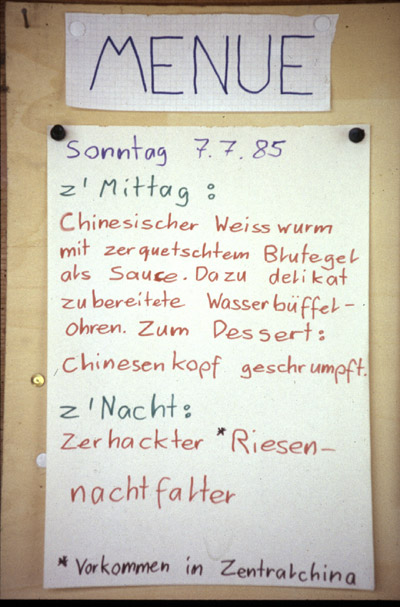 MENUE
Sonntag 7.7.85
z'Mittag:
Chinesischer Weisswurm
mit zerquetschtem Blutegel
als Sauce. Dazu delikat
zubereitete Wasserbüffel-
ohren. Zum Dessert:
Chinesenkopf geschrumpft.
z'Nacht:
Zerhackter *Riesen-
nachtfalter
*Vorkommen in Zentralchina